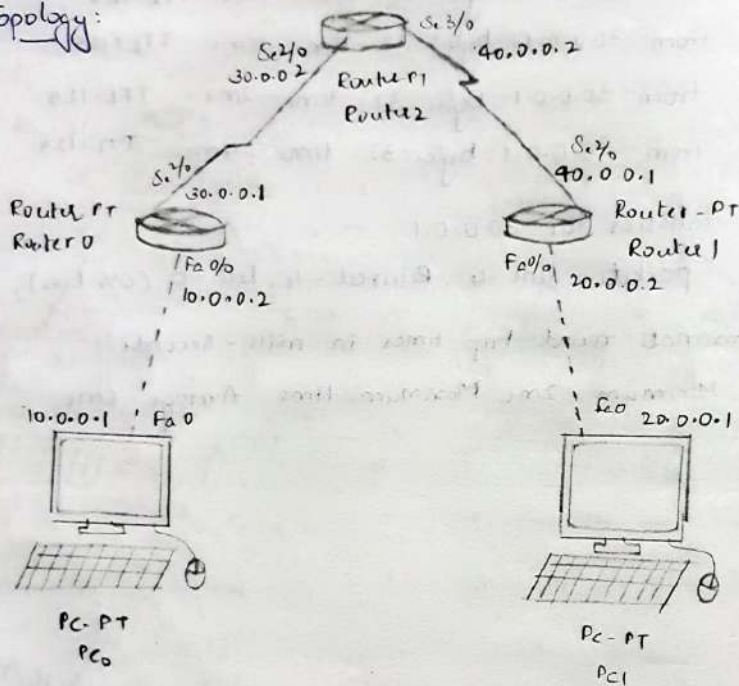 Topology:
Se3/0
40.0.0.2
Se2/0
30.0.0.2
Router PT
Router2
Se2/0
30.0.0.1
Se2/0
40.0.0.1
Router PT
Router 0
Router-PT
Router 1
Fa 0/0
10.0.0.2
Fa0/0
20.0.0.2
10.0.0.1 Fa 0
Fa0 20.0.0.1
PC-PT
PC0
PC-PT
PC1